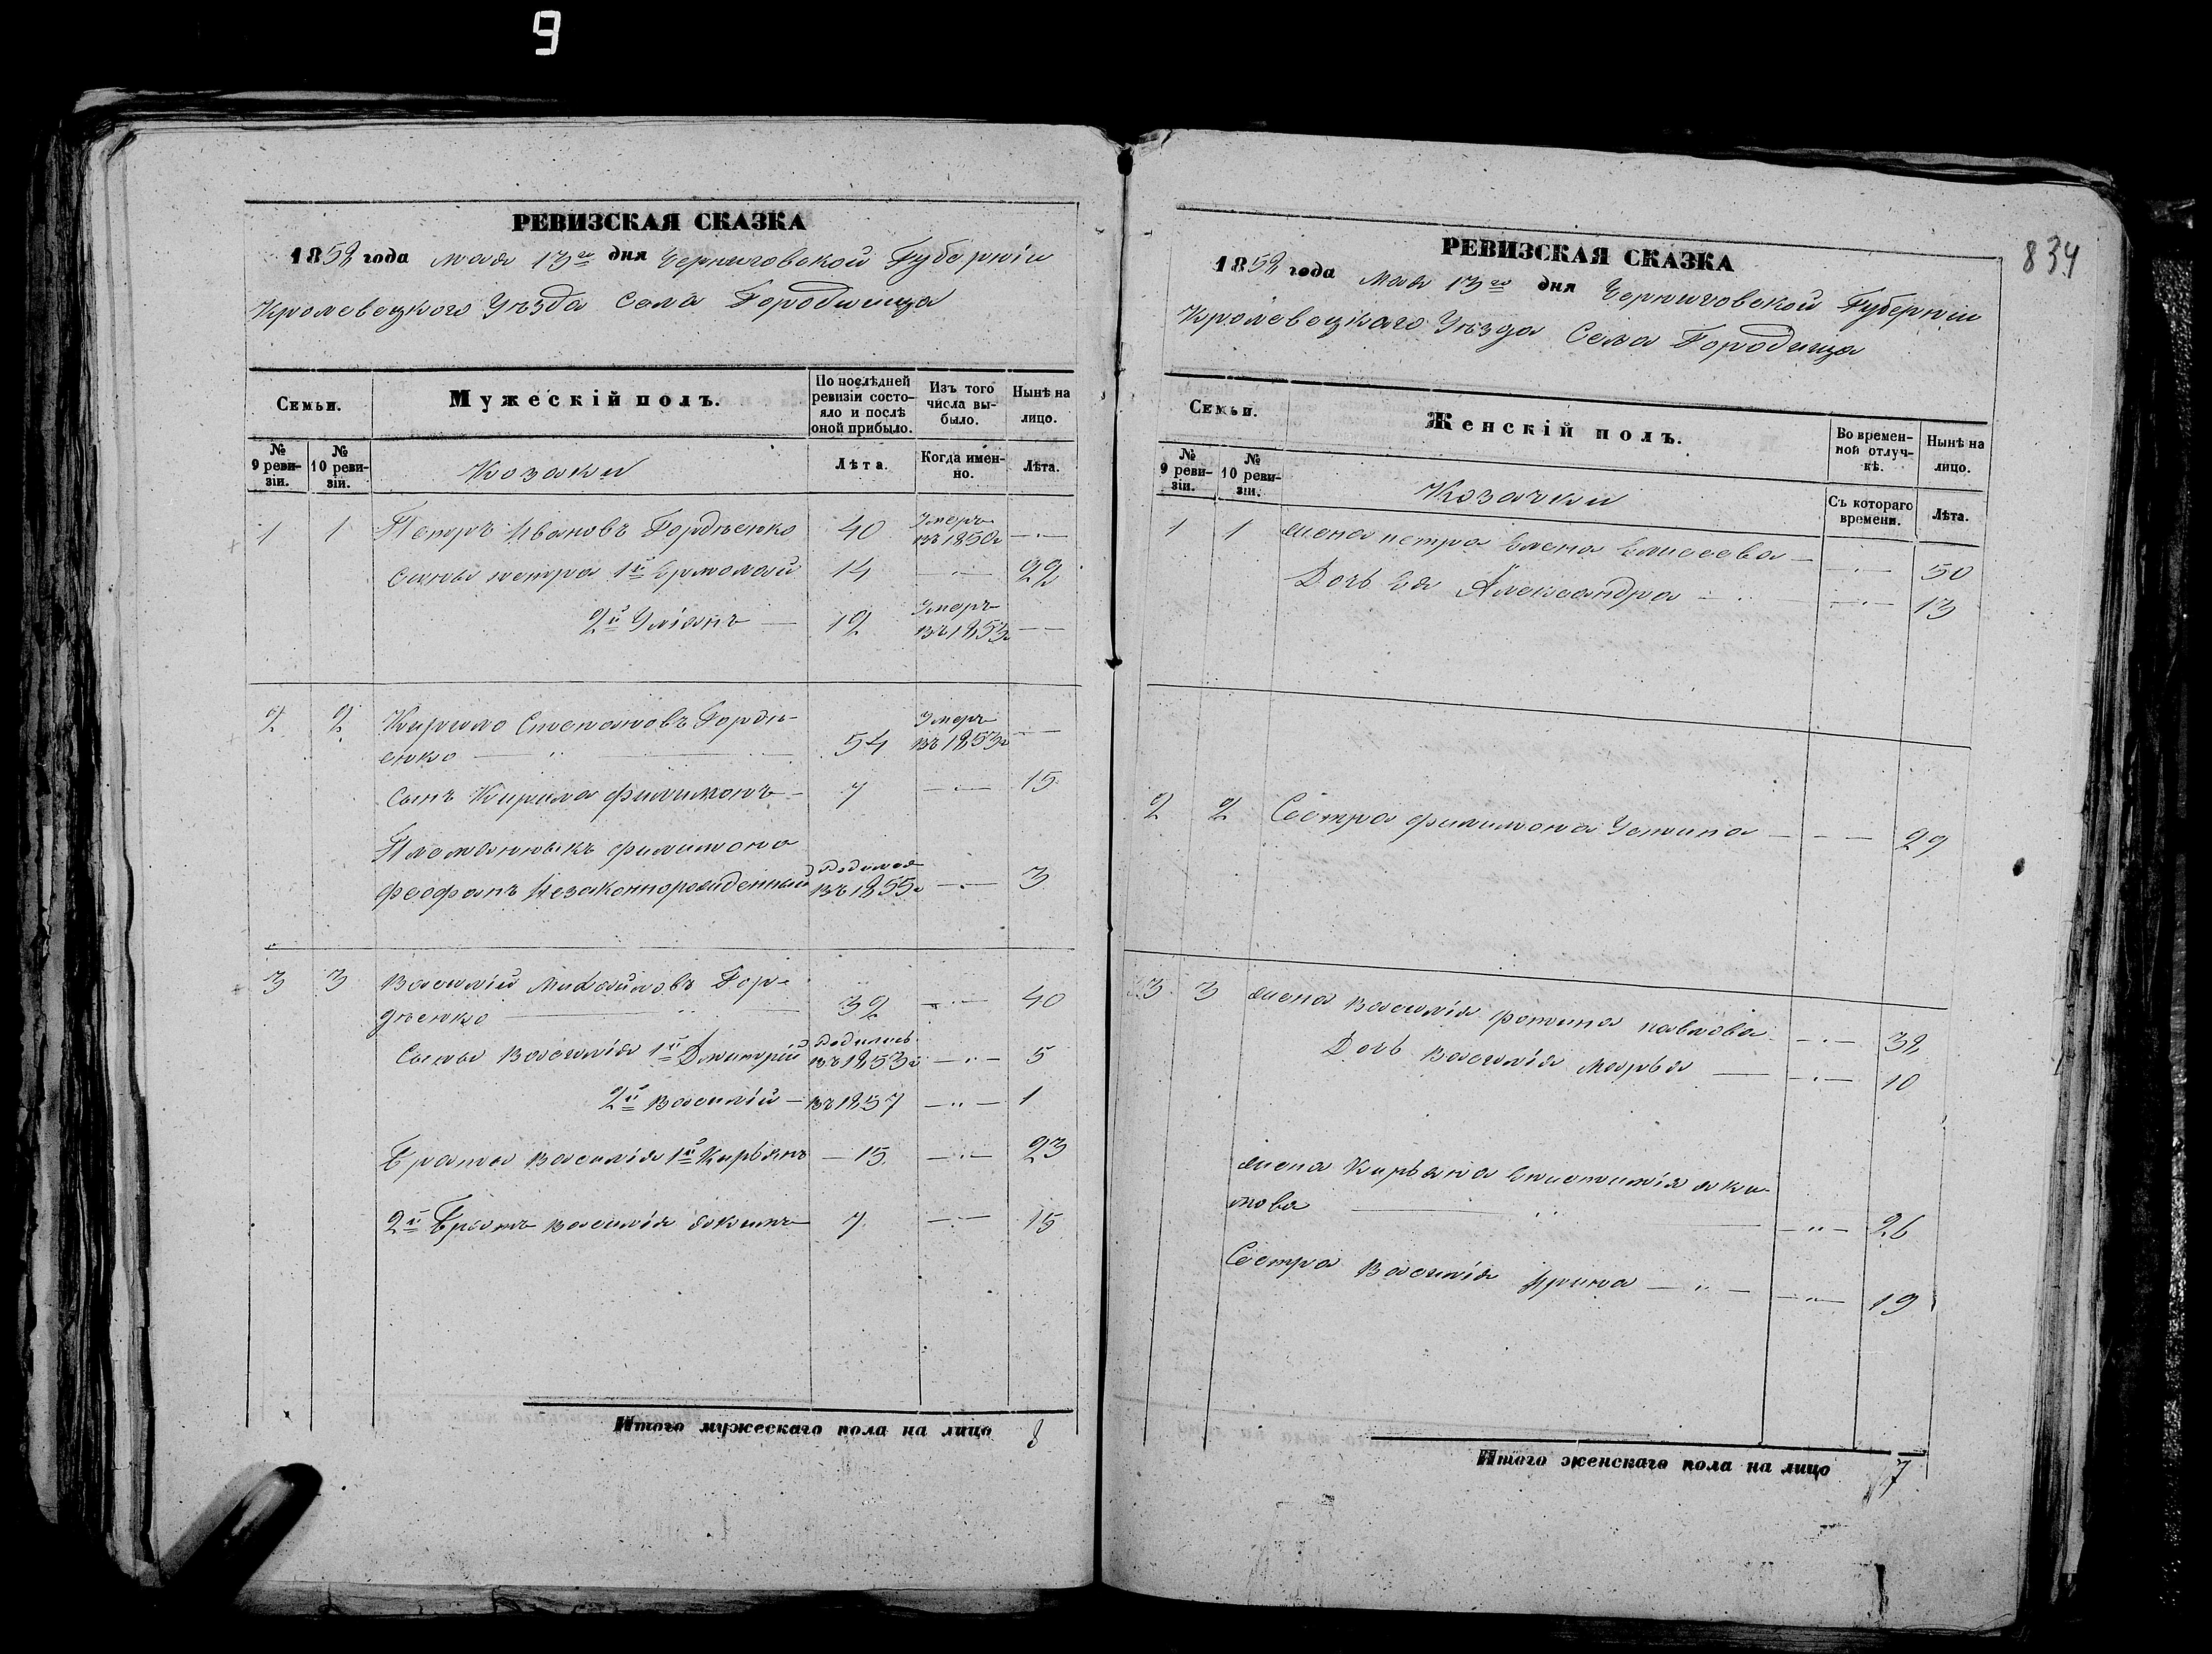 9
РЕВИЗСКАЯ СКАЗКА
1858 года мая 13го дня Черниговской Губерніи
Кролевецкого Уѣзда Села Городища
Семьи.
Мужескій полъ.
По послѣдней ревизіи состояло и послѣ оной прибыло.
Изъ того числа выбыло.
Ныне на лицо.
№ 9 ревизіи.
№ 10 ревизіи.
Козаки
Лѣта.
Когда именно.
Лѣта.
1 1 Петръ Ивановъ Гордѣенко 40 Умеръ въ 1850г —
Сыны петра 1й Ермолай 14 — 22
2й Уліанъ — 12 Умеръ въ 1853г —
2 2 Кирило Степановъ Горди-
енко — 54 Умеръ въ 1853г —
Сынъ Кирила Филимонъ — 7 — 15
Племянникъ филимона
Феофанъ Незаконнорожденный родился въ 1855г — 3
3 3 Василій Михайловъ Гор-
дѣенко — 32 — 40
Сыны Василія 1й Дмитрій родились въ 1853г — 5
2й Василій — въ 1857 — 1
Браты Василія 1й Кирьянъ — 15 — 23
2й Братъ Василія Якимъ 7 — 15
Итого мужескаго пола на лицо 8
834
РЕВИЗСКАЯ СКАЗКА
1858 года Мая 13го дня Черниговской Губерніи
Кролевецкаго Уѣзда Села Городища
Семьи.
Женскій полъ.
Во временной отлучкѣ.
Нынѣ на лицо.
№ 9 ревизіи.
№ 10 ревизіи.
Козачки
Съ котораго времени.
Лѣта.
1 1 жена петра Елена Елисеева — 50
Дочь Ея Александра — 13
2 2 Сестра филимона Устина — 29
3 3 жена Василія фотина павлова — 38
Дочь Василія Марья — 10
жена Кирьяна Епистимія Яки-
мова — 26
Сестра Василія Ирина — 19
Итого женскаго пола на лицо 7